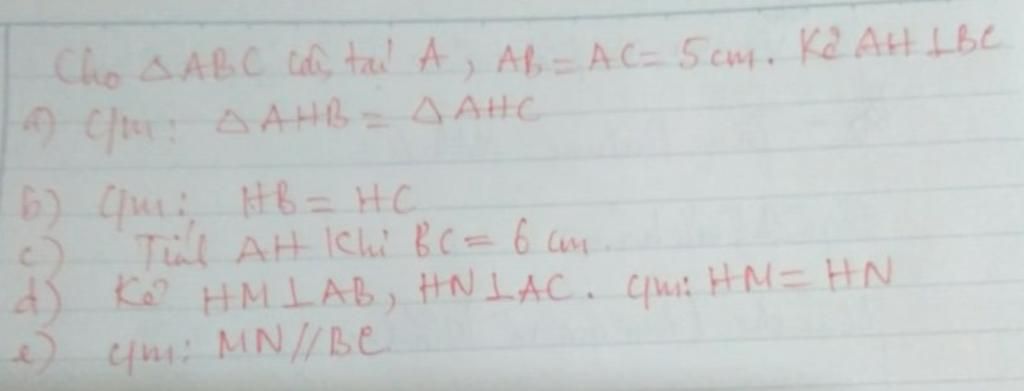 Cho △ABC cân tại A, AB = AC = 5cm. Kẻ AH ⊥ BC
a) C/m: △AHB = △AHC
b) C/m: HB = HC
c) Tính AH khi BC = 6 cm.
d) Kẻ HM ⊥ AB, HN ⊥ AC. C/m: HM = HN
e) C/m: MN // BC